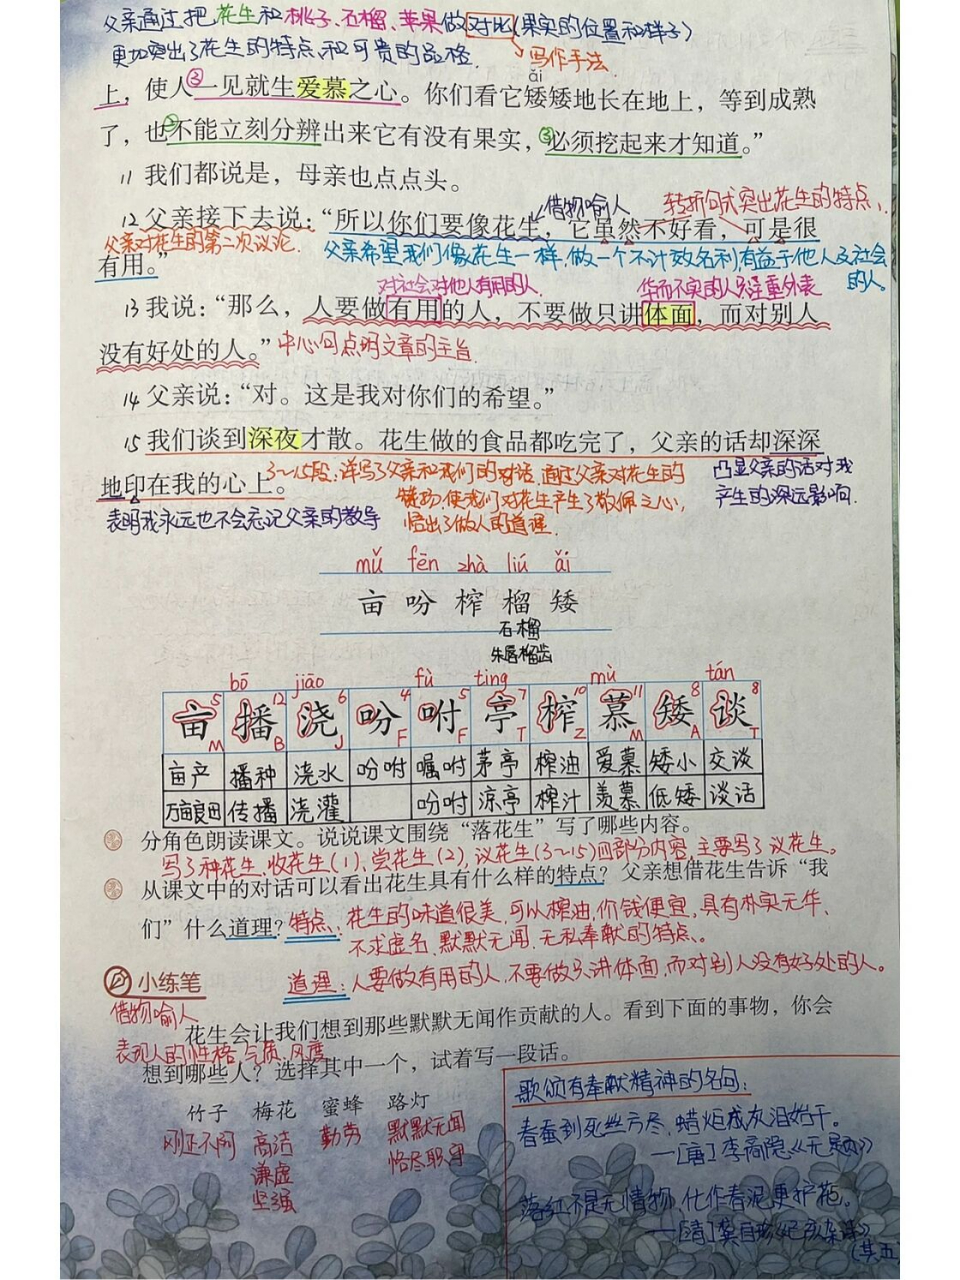 父亲通过把花生和桃子、石榴、苹果做对比(果实的位置和样子)
更加突出了花生的特点和可贵的品格.
写作手法.
ǎi
上，使人③一见就生爱慕之心。你们看它矮矮地长在地上，等到成熟
了，也②不能立刻分辨出来它有没有果实，③必须挖起来才知道。”
11 我们都说是，母亲也点点头。
借物喻人 转折句式突出花生的特点.
12 父亲接下去说：“所以你们要像花生，它虽然不好看，可是很
父亲对花生的第二次议论.
父亲希望我们像花生一样,做一个不计较名利,有益于他人及社会
的人。
有用。”
对社会对他人有用的人. 华而不实的人只注重外表
13 我说：“那么，人要做有用的人，不要做只讲体面，而对别人
没有好处的人。”中心句点明文章的主旨.
14 父亲说：“对。这是我对你们的希望。”
15 我们谈到深夜才散。花生做的食品都吃完了，父亲的话却深深
地印在我的心上。
3~15段:详写了父亲和我们的对话,通过父亲对花生的
赞扬,使我们对花生产生了敬佩之心,
悟出了做人的道理.
凸显父亲的话对我
产生的深远影响.
表明我永远也不会忘记父亲的教导
mǔ fēn zhà liú ǎi
亩 吩 榨 榴 矮
石榴
朱唇榴齿
bō jiāo fù ting mù tán
亩 播 浇 吩 咐 亭 榨 慕 矮 谈
5 12 6 4 5 7 10 11 8 8
M B J F F T Z M A T
亩产 播种 浇水 吩咐 嘱咐 茅亭 榨油 爱慕 矮小 交谈
万亩良田 传播 浇灌 吩咐 凉亭 榨汁 羡慕 低矮 谈话
分角色朗读课文。说说课文围绕“落花生”写了哪些内容。
写了种花生、收花生(1)、尝花生(2)、议花生(3~15)四部分内容,主要写了议花生。
从课文中的对话可以看出花生具有什么样的特点？父亲想借花生告诉“我
们”什么道理？特点:花生的味道很美,可以榨油,价钱便宜,具有朴实无华、
不求虚名、默默无闻、无私奉献的特点。
小练笔
道理:人要做有用的人,不要做只讲体面,而对别人没有好处的人。
借物喻人
花生会让我们想到那些默默无闻作贡献的人。看到下面的事物，你会
表现人的性格、气质、风度
想到哪些人？选择其中一个，试着写一段话。
竹子 梅花 蜜蜂 路灯
刚正不阿 高洁 勤劳 默默无闻
谦虚 恪尽职守
坚强
歌颂有奉献精神的名句:
春蚕到死丝方尽,蜡炬成灰泪始干。
—[唐]李商隐《无题》
落红不是无情物,化作春泥更护花。
—[清]龚自珍《己亥杂诗》
(其五